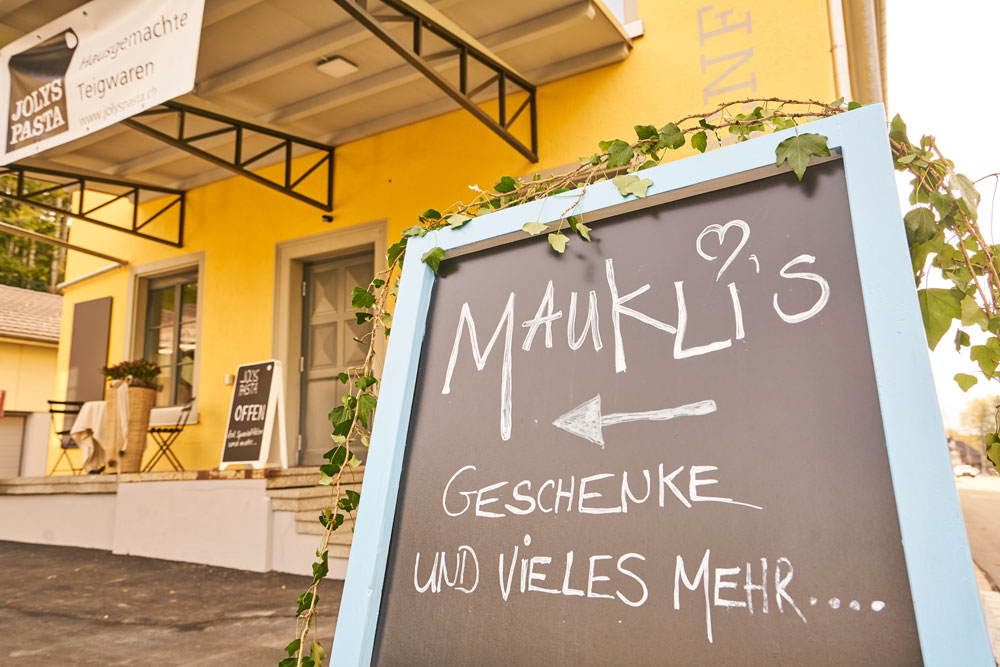 JOLYS
PASTA
Hausgemachte
Teigwaren
www.jolyspasta.ch
NF
JOLYS
PASTA
OFFEN
MAUKLi's
GESCHENKE
UND VIELES MEHR.....